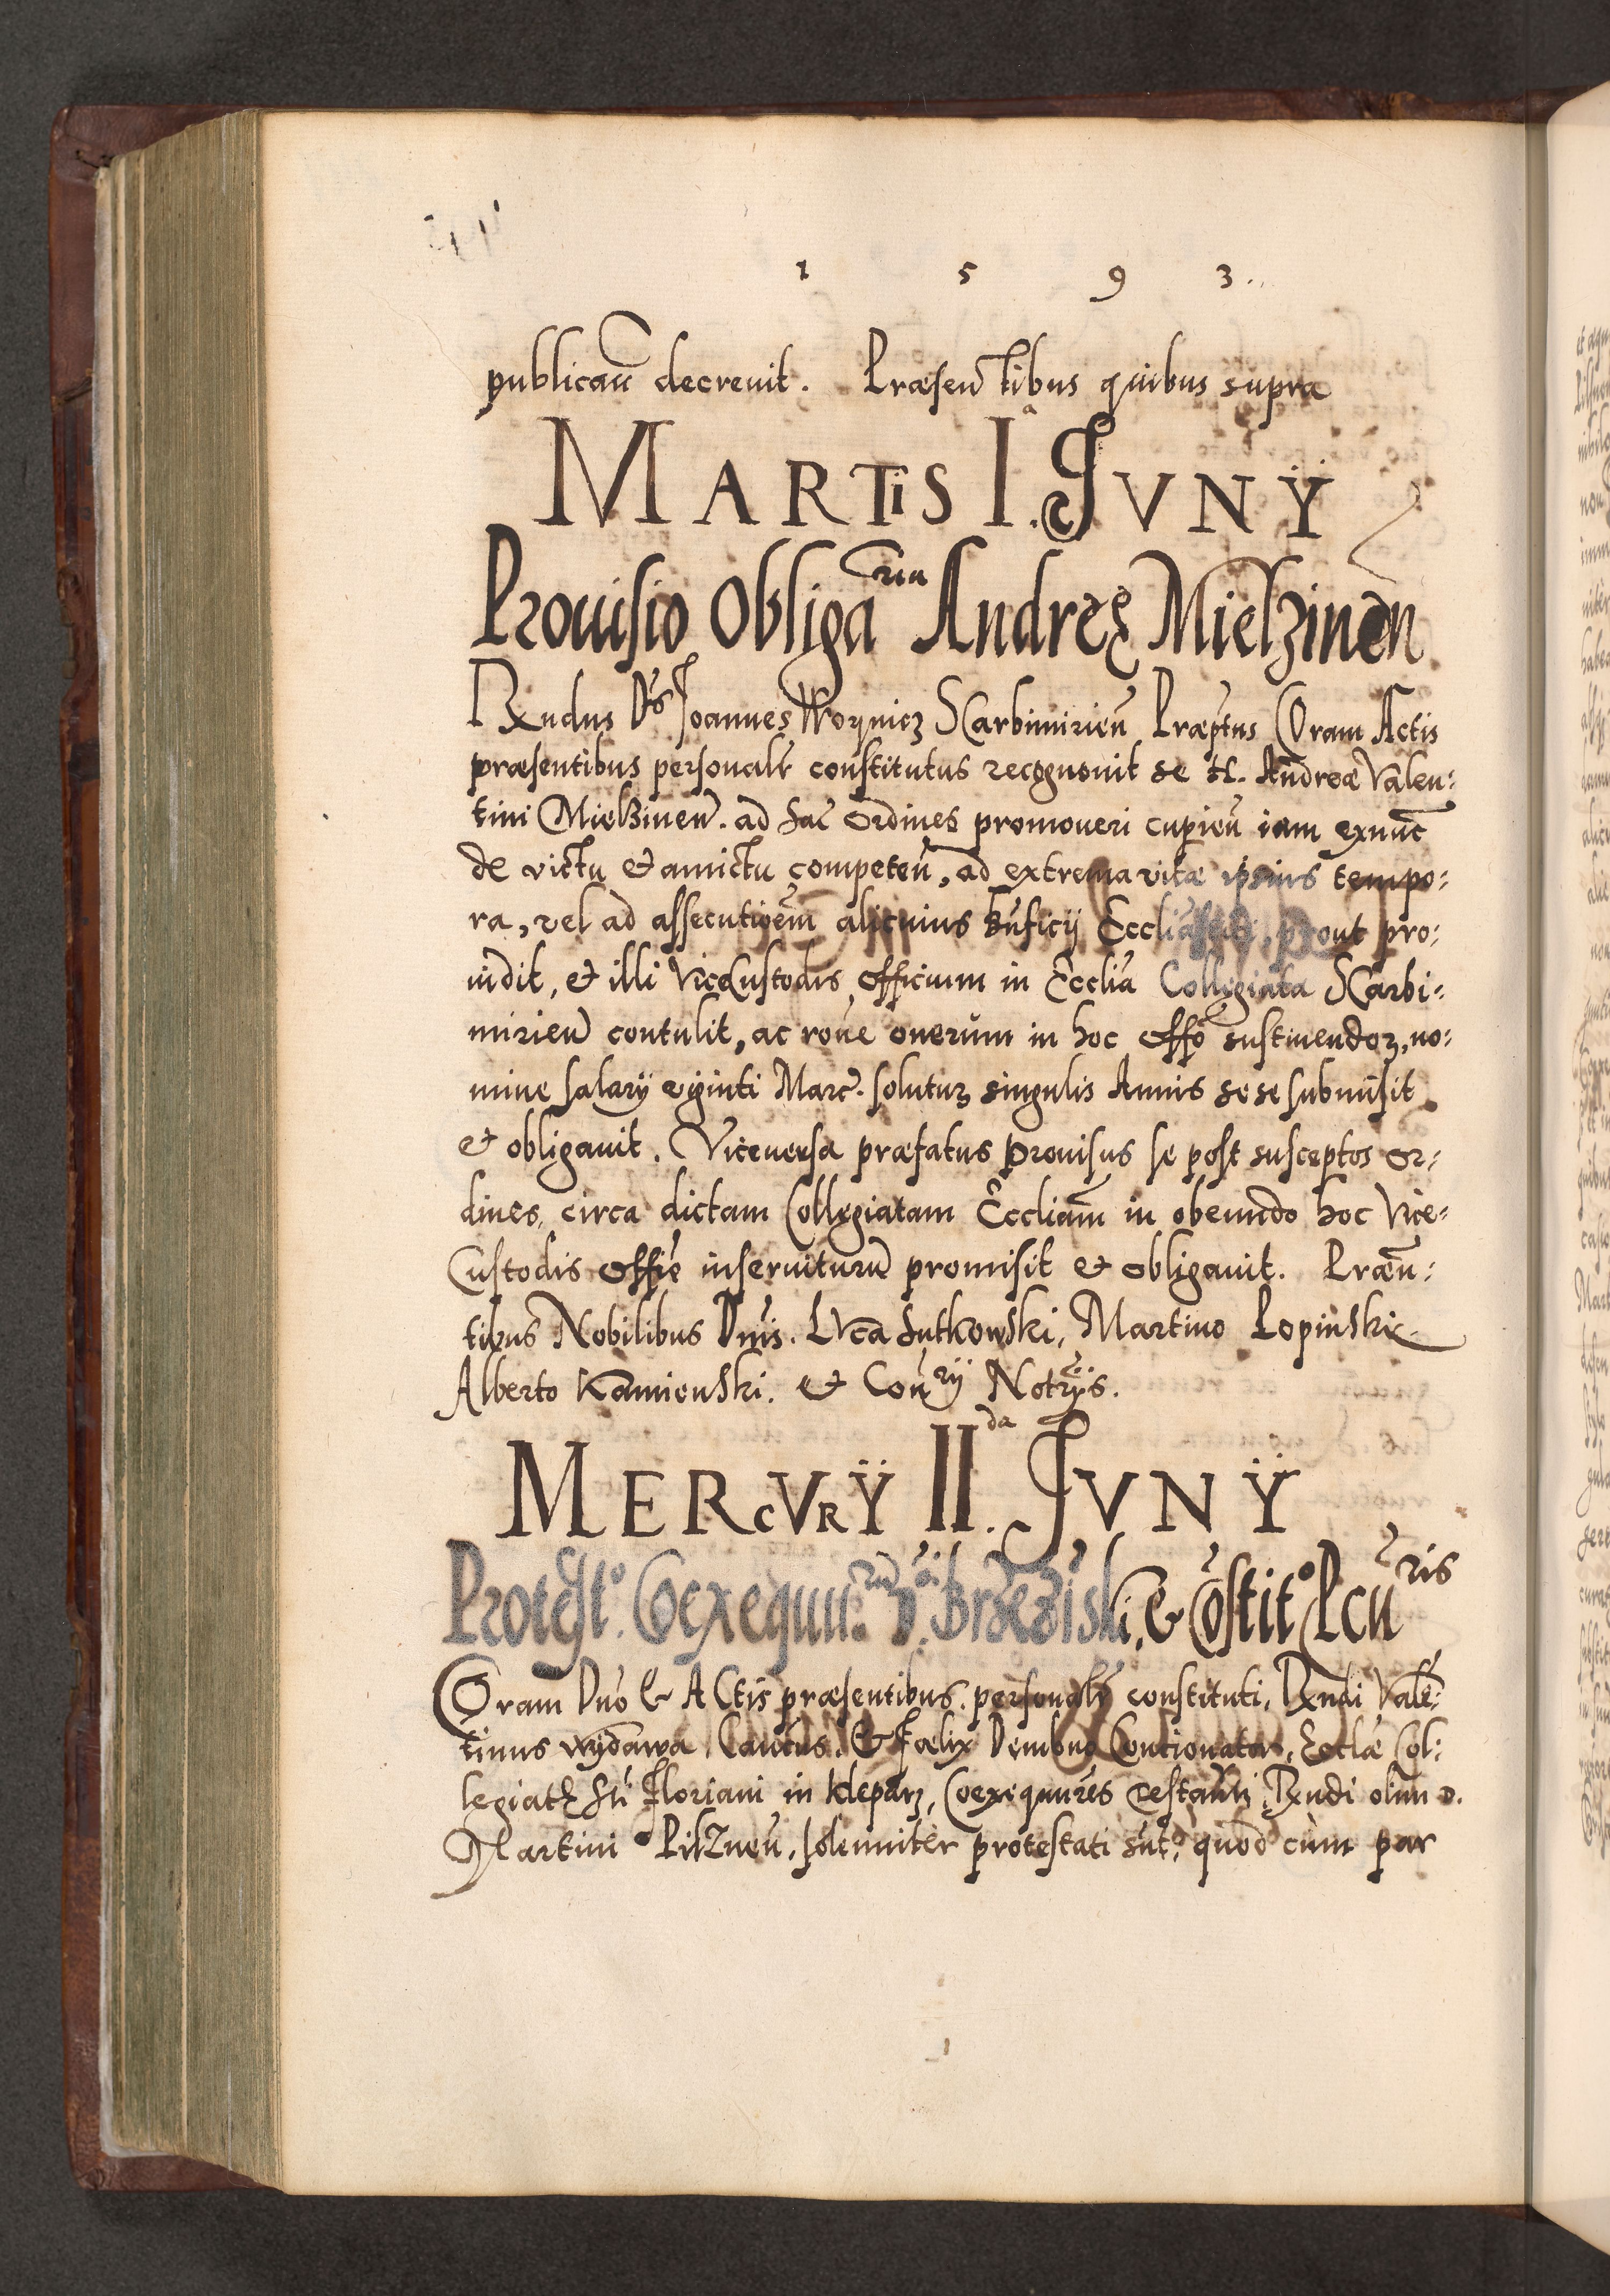 1 5 9 3..
publicañ decrevit. Præseñtibus quibus supra
MARTIS I.ª JVNŸ
Provisio Obligãria Andreę Mielzineñ
Rxndus Dns Joannes Woynicz SCarbimirieñ Præptus Coram Actis
præsentibus personalr̃ constitutus recognovit se H. Andreæ Valen:
tini Mielzineñ. ad sac̃ ordines promoveri cupieñ iam exnuc̃
de victu et amictu competeñ, ad extrema vitæ ipsius tempo:
ra, vel ad assecutioem̃ alicuius bñficij Eccliastici, prout pro:
vidit, et illi ViceCustodis officium in Ecclia Collegiata SCarbi:
mirieñ contulit, ac roñe onerum in hoc offõ sustinendoꝝ, no:
mine salarÿ viginti Marc̃. solutuꝝ singulis Annis sese submisit
et obligavit. Viceversa præfatus provisus se post susceptos or:
dines, circa dictam Collegiatam Eccliam̃ in obeundo hoc Vice:
Custodis offiõ inserviturũ promisit et obligavit. Præñ:
tibus Nobilibus Dnis. LVca Sutkowski, Martino Lopinski
Alberto Kamienski. et Coñrij Notrÿs.
MERCVRŸ II.da JVNŸ
Protest.º Coexequut.rũ D. Brzeziski, et Cõstit.º Pcũris
Coram Dnõ et ACtis præsentibus personalr̃ constituti, Rxndi Valẽ:
tinus Wydawa Cantus. et Fælix Dembno Contionator, Ecclæ Col:
legiatę Sti Floriani in Kleparz, Coexequutres testam̃ti Rxndi olim D.
Martini Pilzneñ, solenniter protestati sũt, quod cum par